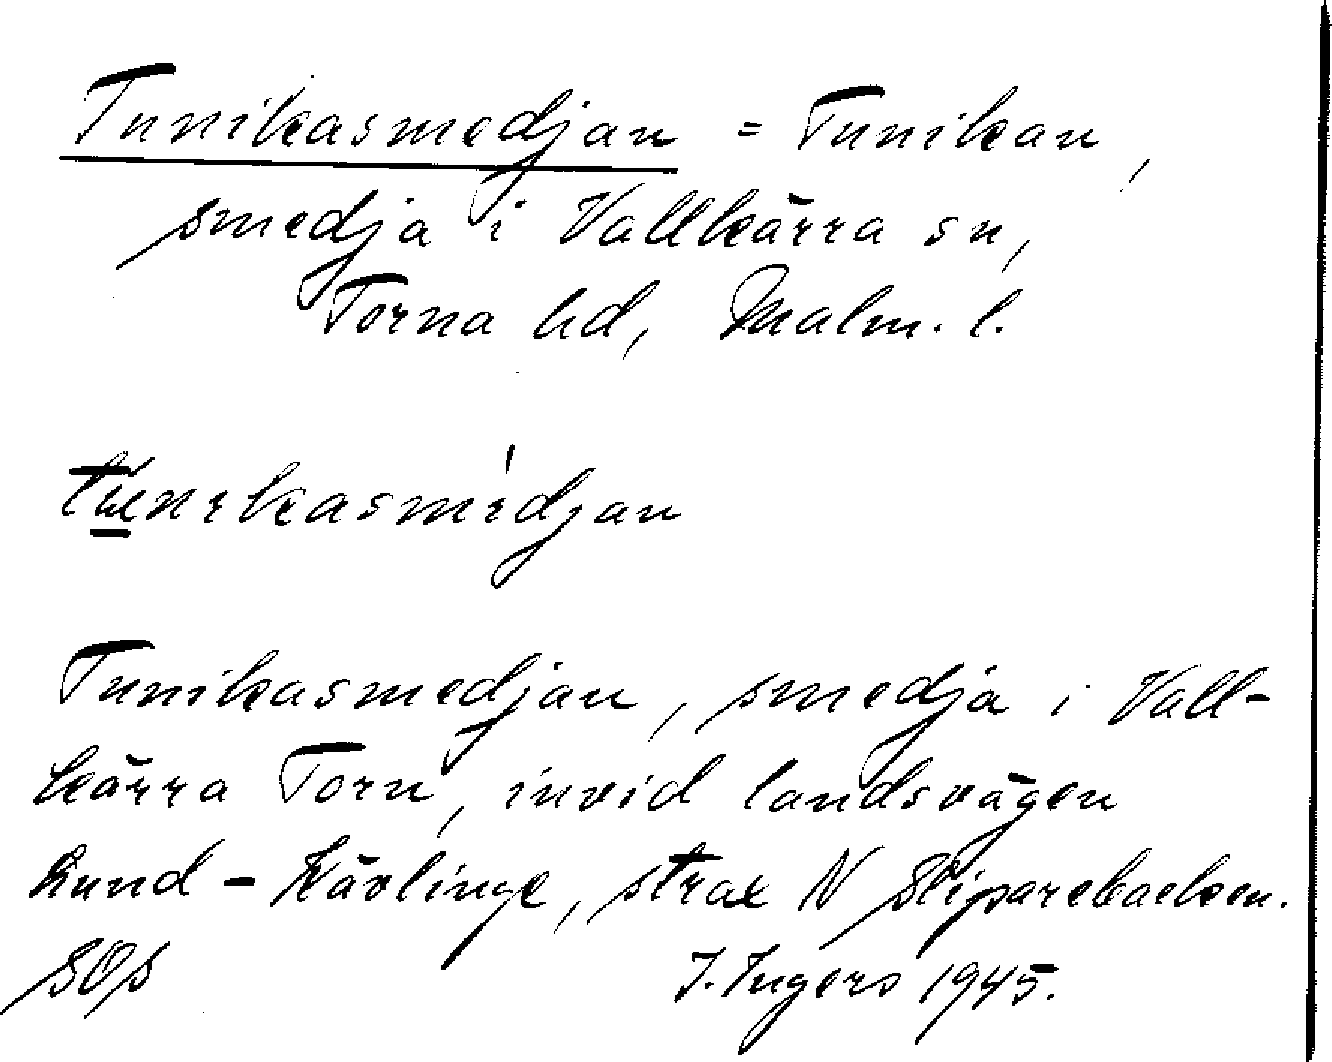 Tunikasmedjan = Tunikan,
smedja i Vallkärra sn,
Torna hd, Malm. l.
Tunikasmedjan, smedja i Vall-
kärra Torn, invid landsvägen
Lund - Kävlinge, strax N Skiparebacken.
SOS I. Ingers 1945.